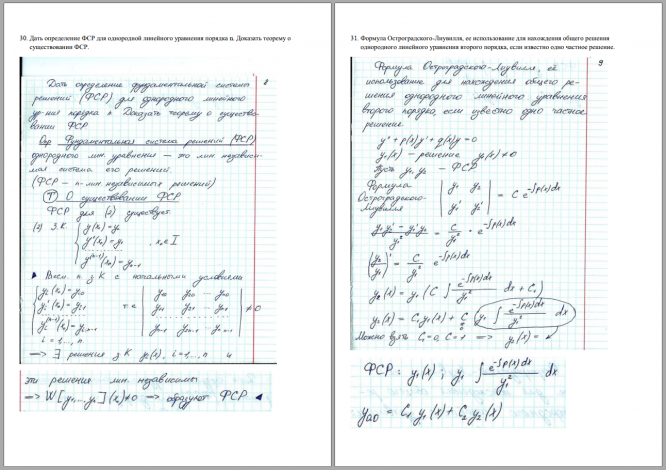 30. Дать определение ФСР для однородной линейного уравнения порядка n. Доказать теорему о
существовании ФСР.
8
Дать определение фундаментальной системы
решений (ФСР) для однородного линейного
ур-ния порядка n. Доказать теорему о существо-
вании ФСР
Опр - Фундаментальная система решений (ФСР)
однородного лин. уравнения — это лин. независи-
мая система его решений.
(ФСР - n - лин. независимых решений)
(Т) О существовании ФСР
ФСР для (2) существует
(2) З.К. { y(x₀) = y₀
y'(x₀) = y₁ , x₀ ∈ I
y⁽ⁿ⁻¹⁾(x₀) = yₙ₋₁
n з К с начальными условиями
{ yᵢ(x₀) = yᵢ₀
yᵢ'(x₀) = yᵢ₁ т.е | y₁₀ y₂₀ ... yₙ₀ |
| y₁₁ y₂₁ ... yₙ₁ | ≠ 0
yᵢ⁽ⁿ⁻¹⁾(x₀) = yᵢ,ₙ₋₁ | y₁ₙ₋₁ y₂ₙ₋₁ ... yₙₙ₋₁ |
i = 1,..., n
=> ∃ решения з К yᵢ(x), i = 1,..., n и
эти решения лин. независимы
=> W[y₁,...yₙ](x₀) ≠ 0 => образуют ФСР ◄
31. Формула Остроградского-Лиувилля, ее использование для нахождения общего решения
однородного линейного уравнения второго порядка, если известно одно частное решение.
9
Формула Остроградского-Лиувилля, её
использование для нахождения общего ре-
шения однородного линейного уравнения
второго порядка, если известно одно частное
решение.
y'' + p(x)y' + q(x)y = 0
y₁(x) - решение y₁(x) ≠ 0
Пусть y₁, y₂ - ФСР
Формула
Остроградского-
Лиувилля | y₁ y₂ |
| y₁' y₂' | = C e^(-∫p(x)dx)
(y₁y₂' - y₁'y₂)/y₁² = C/y₁² · e^(-∫p(x)dx)
(y₂/y₁)' = C/y₁² e^(-∫p(x)dx)
y₂(x) = y₁(C ∫ e^(-∫p(x)dx)/y₁² dx + C₁)
y₂(x) = C₁y₁(x) + C (y₁ ∫ e^(-∫p(x)dx)/y₁² dx)
Можно взять C₁ = 0, C = 1 => y₂(x) =
ФСР: y₁(x); y₁ ∫ e^(-∫p(x)dx)/y₁² dx
y₀₀ = C₁ y₁(x) + C₂ y₂(x)